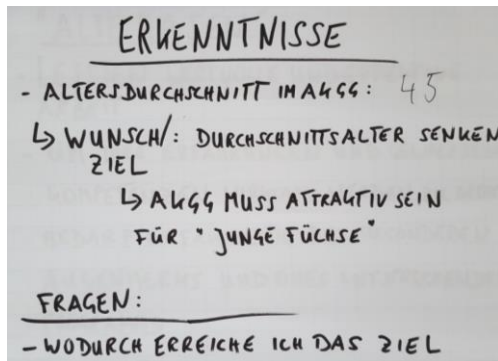 ERKENNTNISSE
- ALTERSDURCHSCHNITT IM AKGG: 45
↳ WUNSCH/: DURCHSCHNITTSALTER SENKEN
ZIEL
↳ AKGG MUSS ATTRAKTIV SEIN
FÜR "JUNGE FÜCHSE"
FRAGEN:
- WODURCH ERREICHE ICH DAS ZIEL